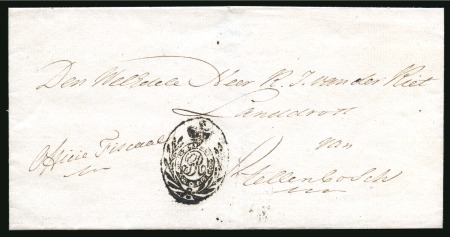 Den WelEdele Heer R. J. van der Riet
Landdrost
van
Stellenbosch
Officie Fiscaal